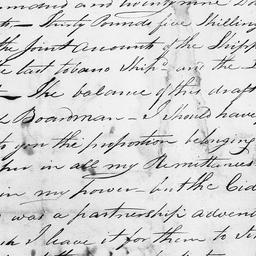 and twenty nine
Thirty Pounds five Shilling
the joint accounts of the Shipp
last tobacco Ship'd and the
The balance of this draft
Boardman - I should have
you the proportion belonging
in all my Remittances
in my power but the
was a partnership advent
I leave it for them to